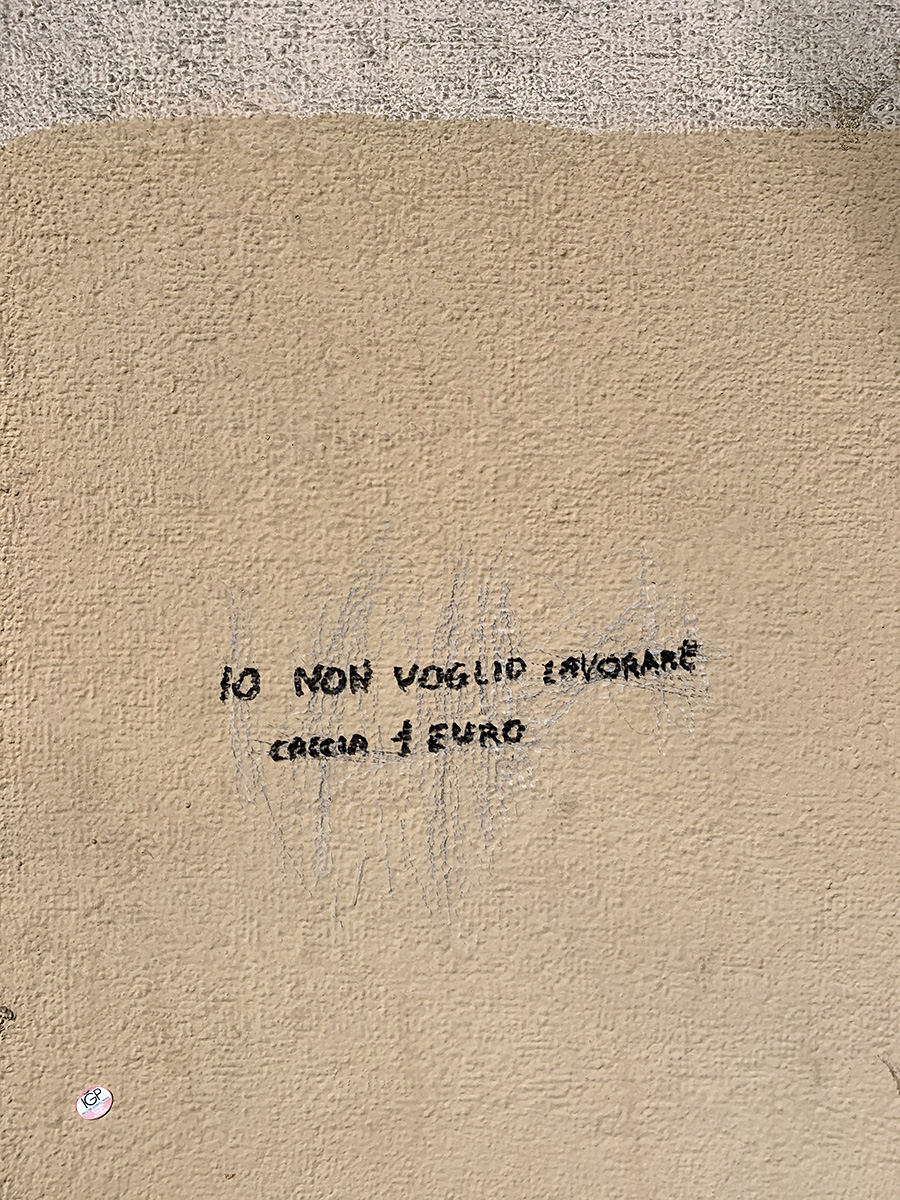 IO NON VOGLIO LAVORARE
CACCIA 1 EURO
IGP